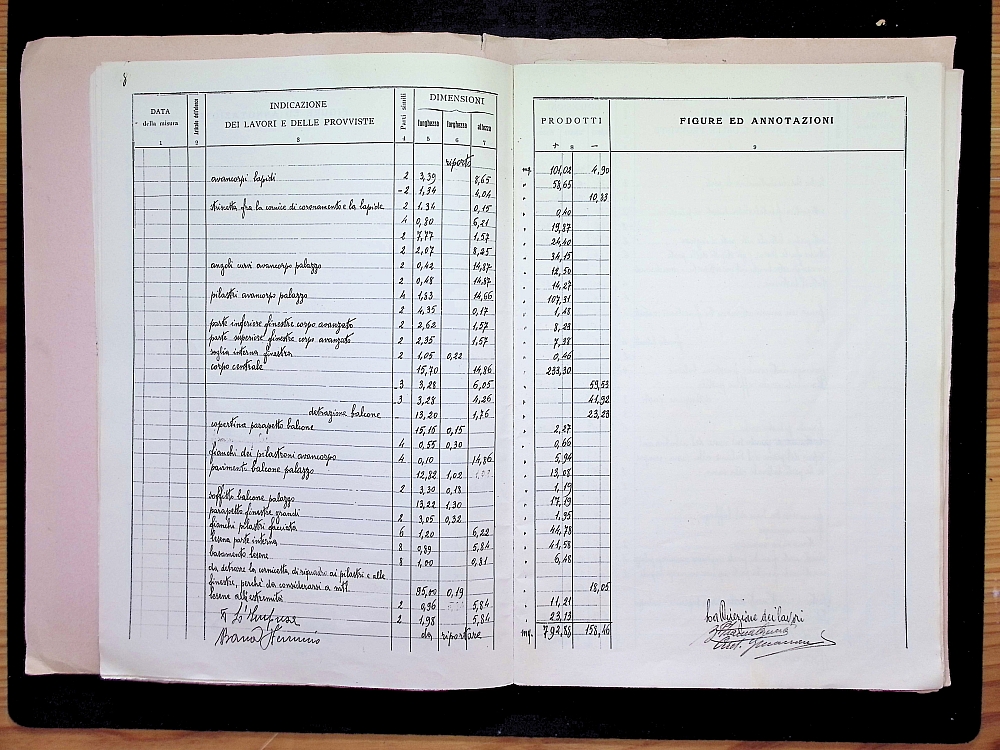 8
DATA della misura
Articolo dell'elenco
INDICAZIONE DEI LAVORI E DELLE PROVVISTE
Parti simili
DIMENSIONI
lunghezza larghezza altezza
PRODOTTI
FIGURE ED ANNOTAZIONI
1 2 3 4 5 6 7 + 8 − 9
riporto mq. 101,02 4,90
avancorpi lapidi 2 3,39 8,65 " 58,65
-2 1,34 4,04 " 10,83
striscetta fra la cornice di coronamento e la lapide 2 1,34 0,15 " 0,40
4 0,80 6,21 " 19,87
2 7,77 1,57 " 24,40
2 2,07 8,25 " 34,15
angoli curvi avancorpo palazzo 2 0,42 14,87 " 12,50
2 0,48 14,87 " 14,27
pilastri avancorpo palazzo 4 1,83 14,66 " 107,31
2 4,35 0,17 " 1,48
parte inferiore finestre corpo avanzato 2 2,62 1,57 " 8,23
parte superiore finestre corpo avanzato 2 2,35 1,57 " 7,38
soglia interna finestra 2 1,05 0,22 " 0,46
corpo centrale 15,70 14,86 " 233,30
-3 3,28 6,05 " 59,53
-3 3,28 4,26 " 41,92
detrazione balcone - 13,20 1,76 " 23,23
copertina parapetto balcone 15,16 0,15 " 2,27
4 0,55 0,30 " 0,66
fianchi dei pilastroni avancorpo 4 0,10 14,86 " 5,94
pavimento balcone palazzo 12,82 1,02 " 13,08
2 3,30 0,18 " 1,19
soffitto balcone palazzo 13,22 1,30 " 17,19
parapetto finestre grandi 2 3,05 0,32 " 1,95
fianchi pilastri facciata 6 1,20 6,22 " 44,78
lesena parte interna 8 0,89 5,84 " 41,58
basamento lesene 8 1,00 0,81 " 6,48
da detrarre la cornicetta di riquadro ai pilastri e alle
finestre, perchè da considerarsi a mtl. 95,00 0,19 " 18,05
lesene all'estremità 2 0,96 5,84 " 11,21
2 1,98 5,84 " 23,13
da riportare mq. 792,88 158,46
La Direzione dei lavori